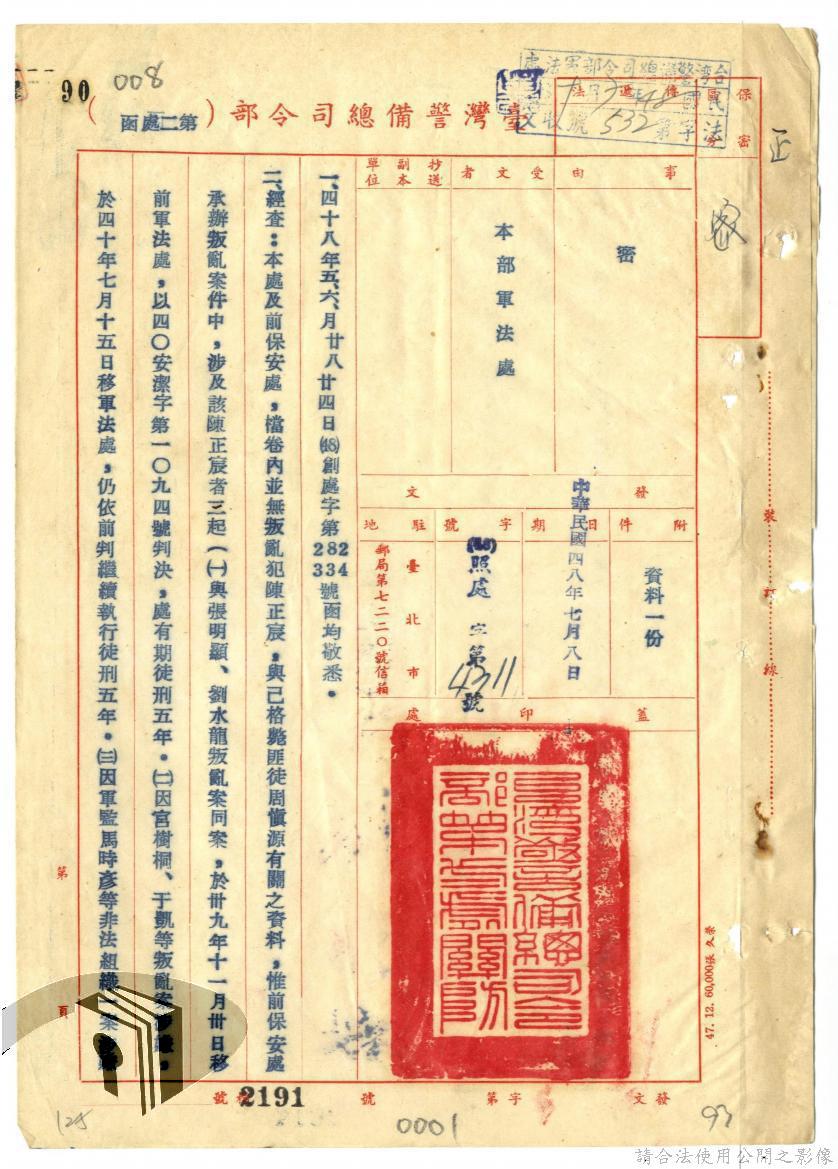 90
008
臺灣警備總司令部（第二處函）
保密
區分
正
密
事由
密
受文者
本部軍法處
抄送副本單位
發文
附件
資料一份
日期
中華民國四八年七月八日
字號
(48)照處字第4311號
駐地
臺北市
郵局第七二二〇號信箱
蓋印處
一、四十八年五、六、月廿八廿四日(48)創處字第282 334號函均敬悉。
二、經查：本處及前保安處，檔卷內並無叛亂犯陳正宸，與已格斃匪徒周慎源有關之資料，惟前保安處
承辦叛亂案件中，涉及該陳正宸者三起(一)與張明顯、劉水龍叛亂案同案，於卅九年十一月卅日移
前軍法處，以四〇安潔字第一〇九四號判決，處有期徒刑五年。(二)因宮樹桐、于凱等叛亂案涉嫌，
於四十年七月十五日移軍法處，仍依前判繼續執行徒刑五年。(三)因軍監馬時彥等非法組織一案
裝訂線
47. 12. 60,000張 久榮
第
頁
發文
字第
號
2191
號
125
0001
93
請合法使用公開之影像